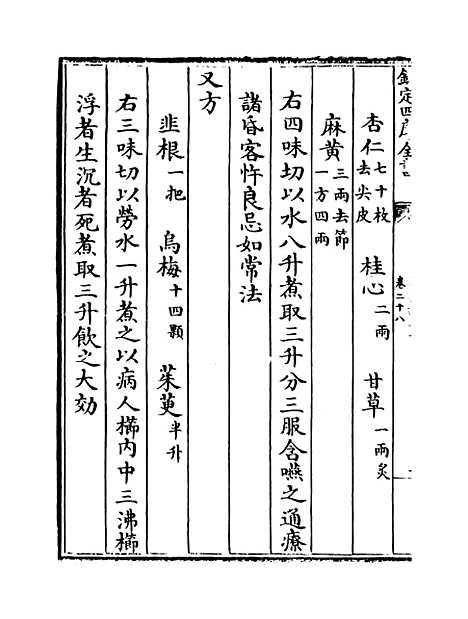 欽定四庫全書
卷二十八
杏仁七十枚去尖皮 桂心二兩 甘草一兩炙
麻黄三兩去節一方四兩
右四味切以水八升煮取三升分三服含嚥之通療
諸昏客忤良忌如常法
又方
韭根一把 烏梅十四顆 茱萸半升
右三味切以勞水一升煮之以病人櫛内中三沸櫛
浮者生沉者死煮取三升飲之大効